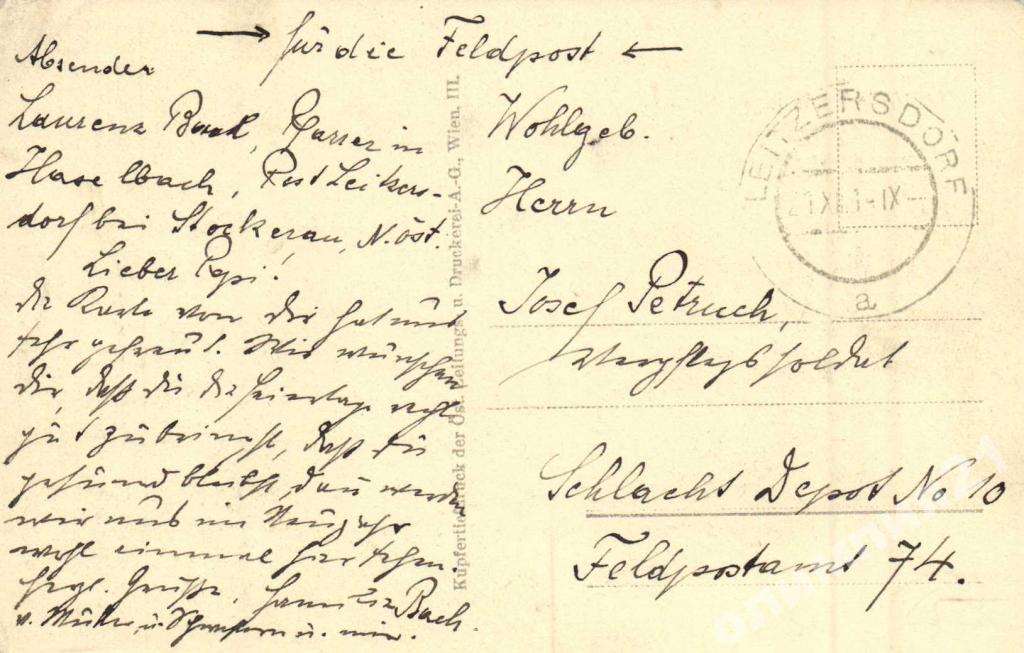 → für die Feldpost ←
Absender
Laurenz Bach, Pfarrer in
Haselbach, Post Leitzers-
dorf bei Stockerau, N.öst.
Lieber Pepi!
die Karte von dir hat uns
sehr gefreut. Wir wünschen
dir, daß du die Feiertage recht
gut zubringst, daß du
gesund bleibst, dann werden
wir uns im Neujahr
wohl einmal hier sehen.
Herzl. Grüße, Familie Bach.
v. Mutter, u. Schwestern u. mir.
Kupfertiefdruck der Öst. Zeitungs- u. Druckerei-A.-G., Wien, III.
Wohlgeb.
Herrn
Josef Petruch,
Verpflegssoldat
Schlacht Depot No 10
Feldpostamt 74.
LEITZERSDORF
a
олимпия21